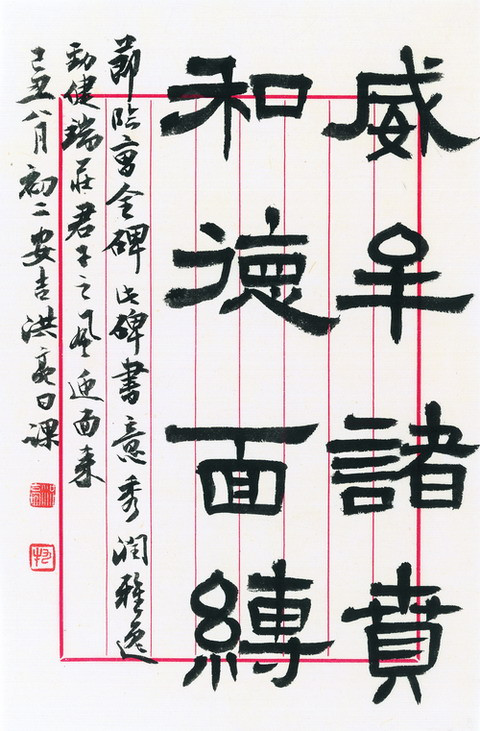 威牟諸賁
和德面縛
節臨曹全碑此碑書意秀潤雅逸
勁健端莊君子之風迎面来
己丑八月初二安吉洪亮日課